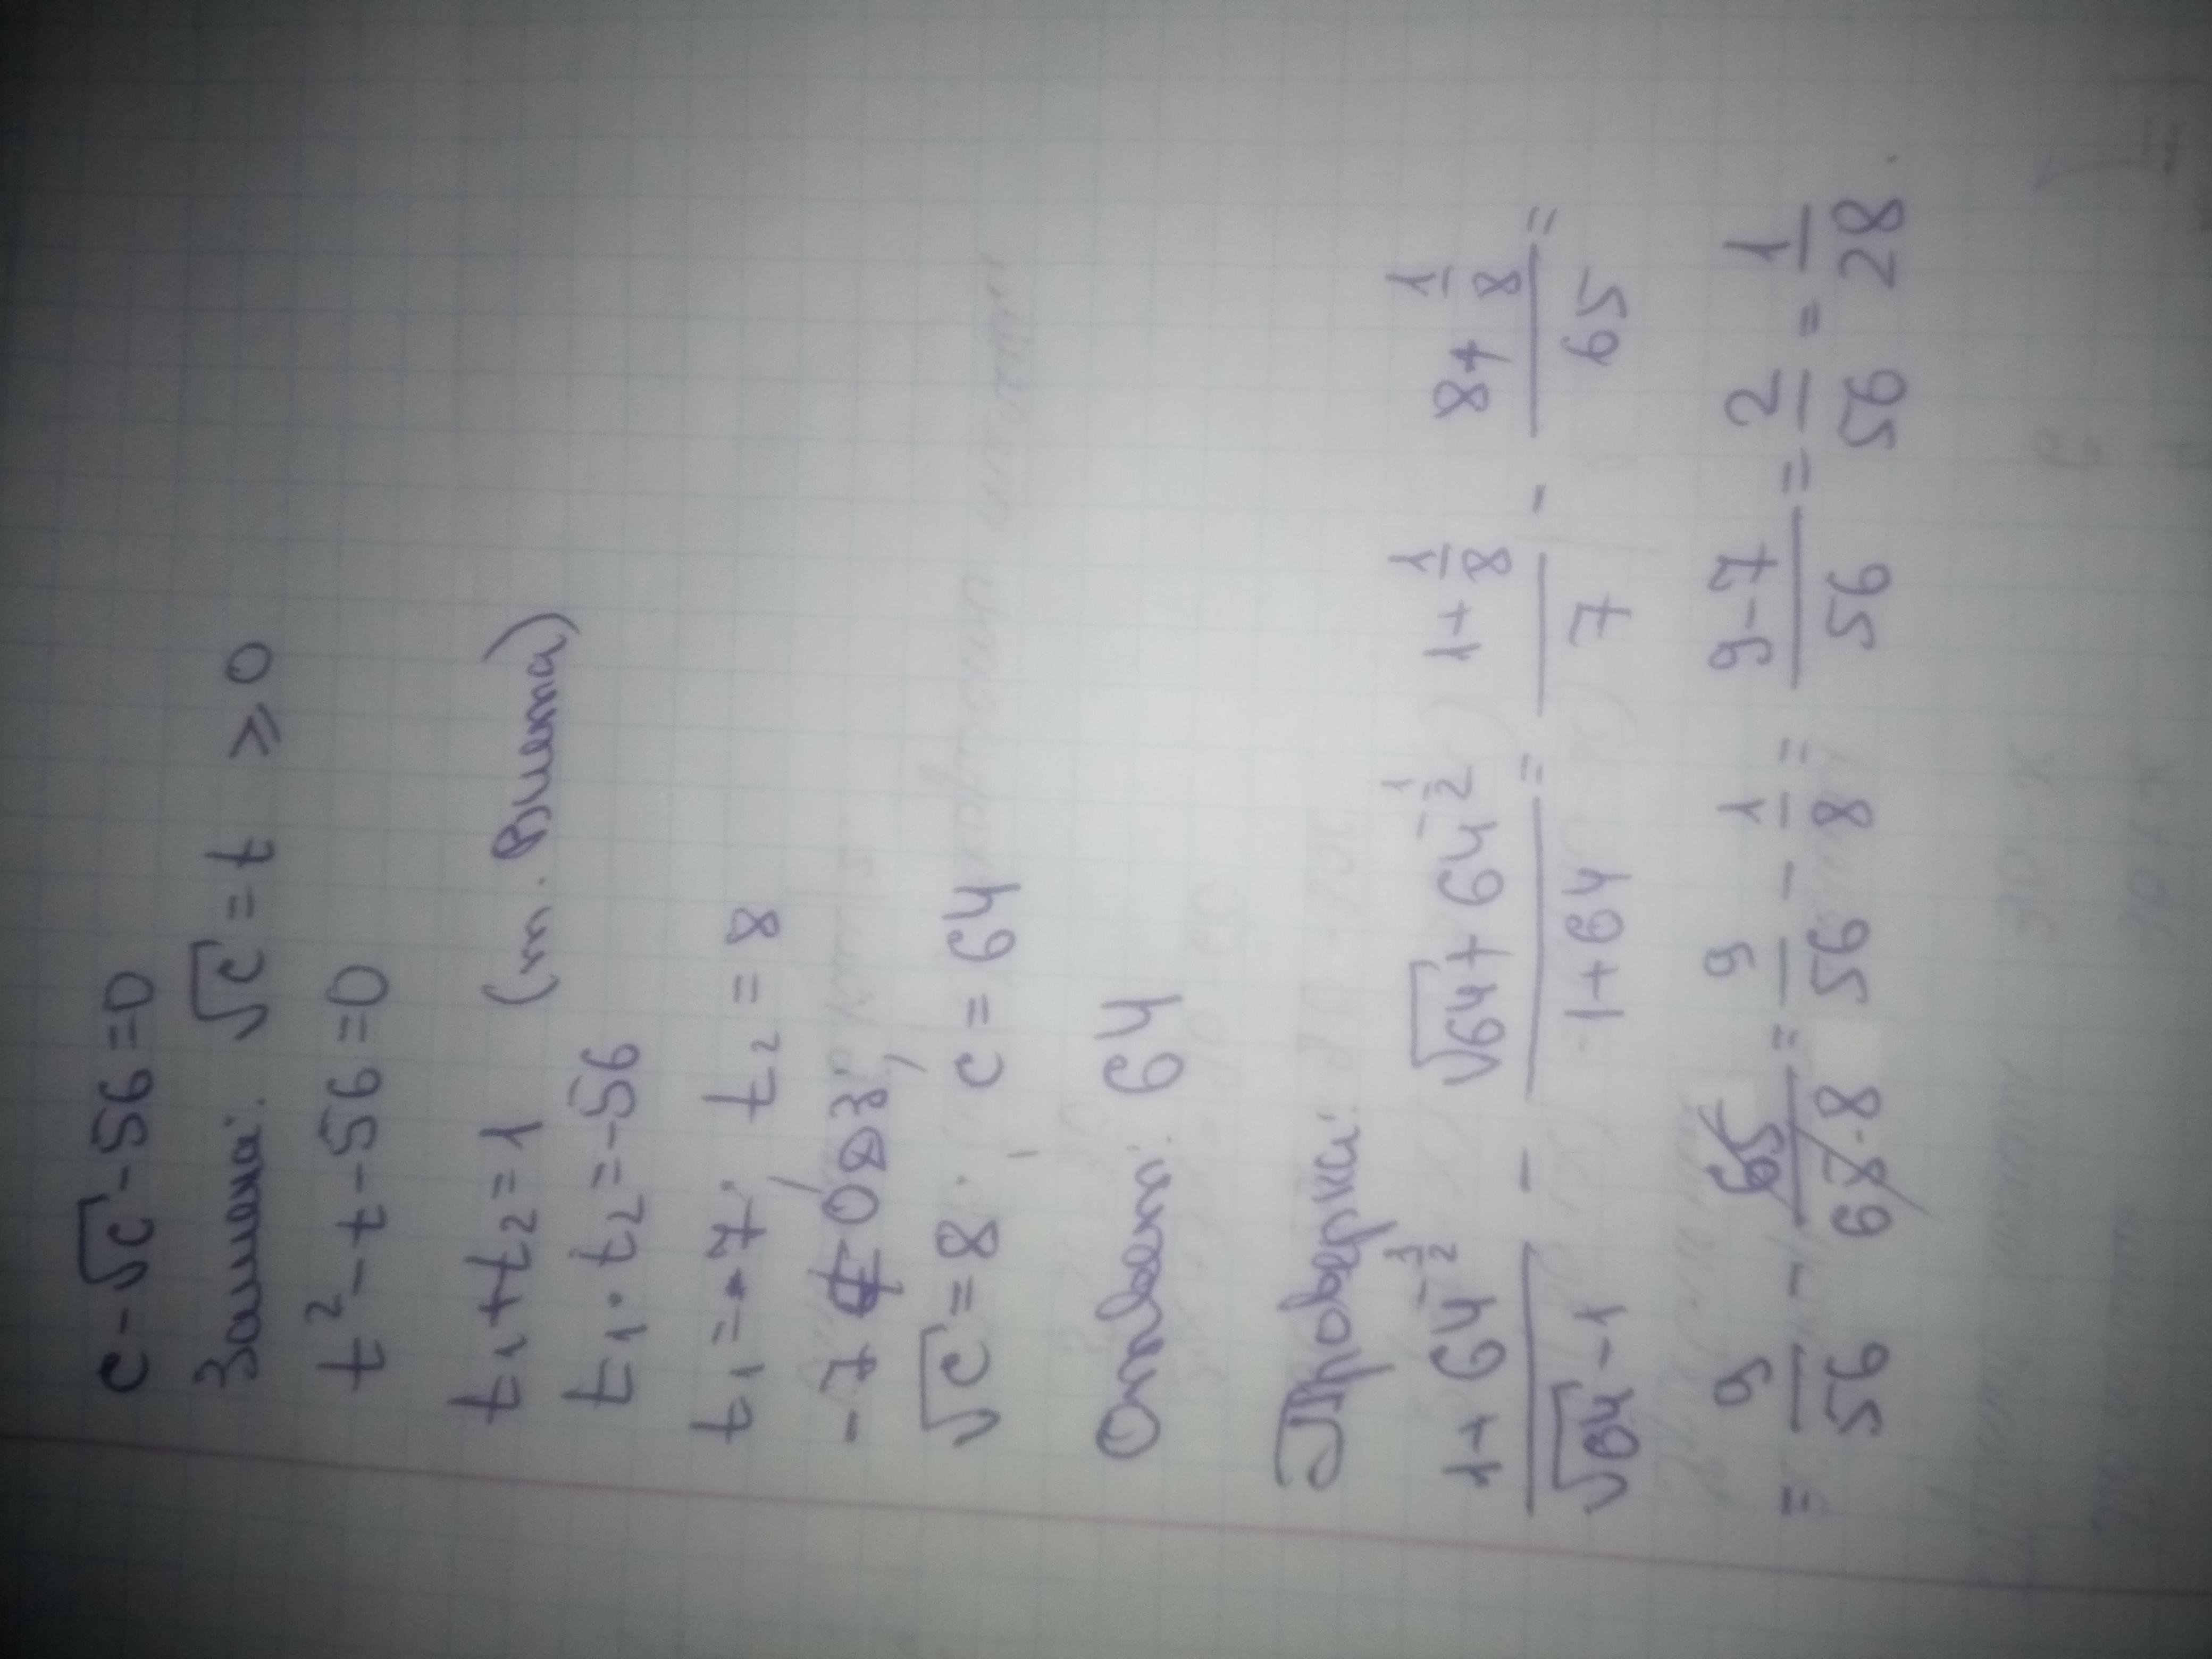 c - √c - 56 = 0
Замена: √c = t ⩾ 0
t² - t - 56 = 0
t₁ + t₂ = 1 (т. Виета)
t₁ · t₂ = -56
t₁ = -7; t₂ = 8
-7 ∉ ОДЗ;
√c = 8; c = 64
Ответ: 64
Проверка:
(1 + 64^(-1/2))/(√64 - 1) - (√64 + 64^(-1/2))/(1 + 64) = (1 + 1/8)/7 - (8 + 1/8)/65 =
= 9/56 - 65/(65·8) = 9/56 - 1/8 = (9 - 7)/56 = 2/56 = 1/28.